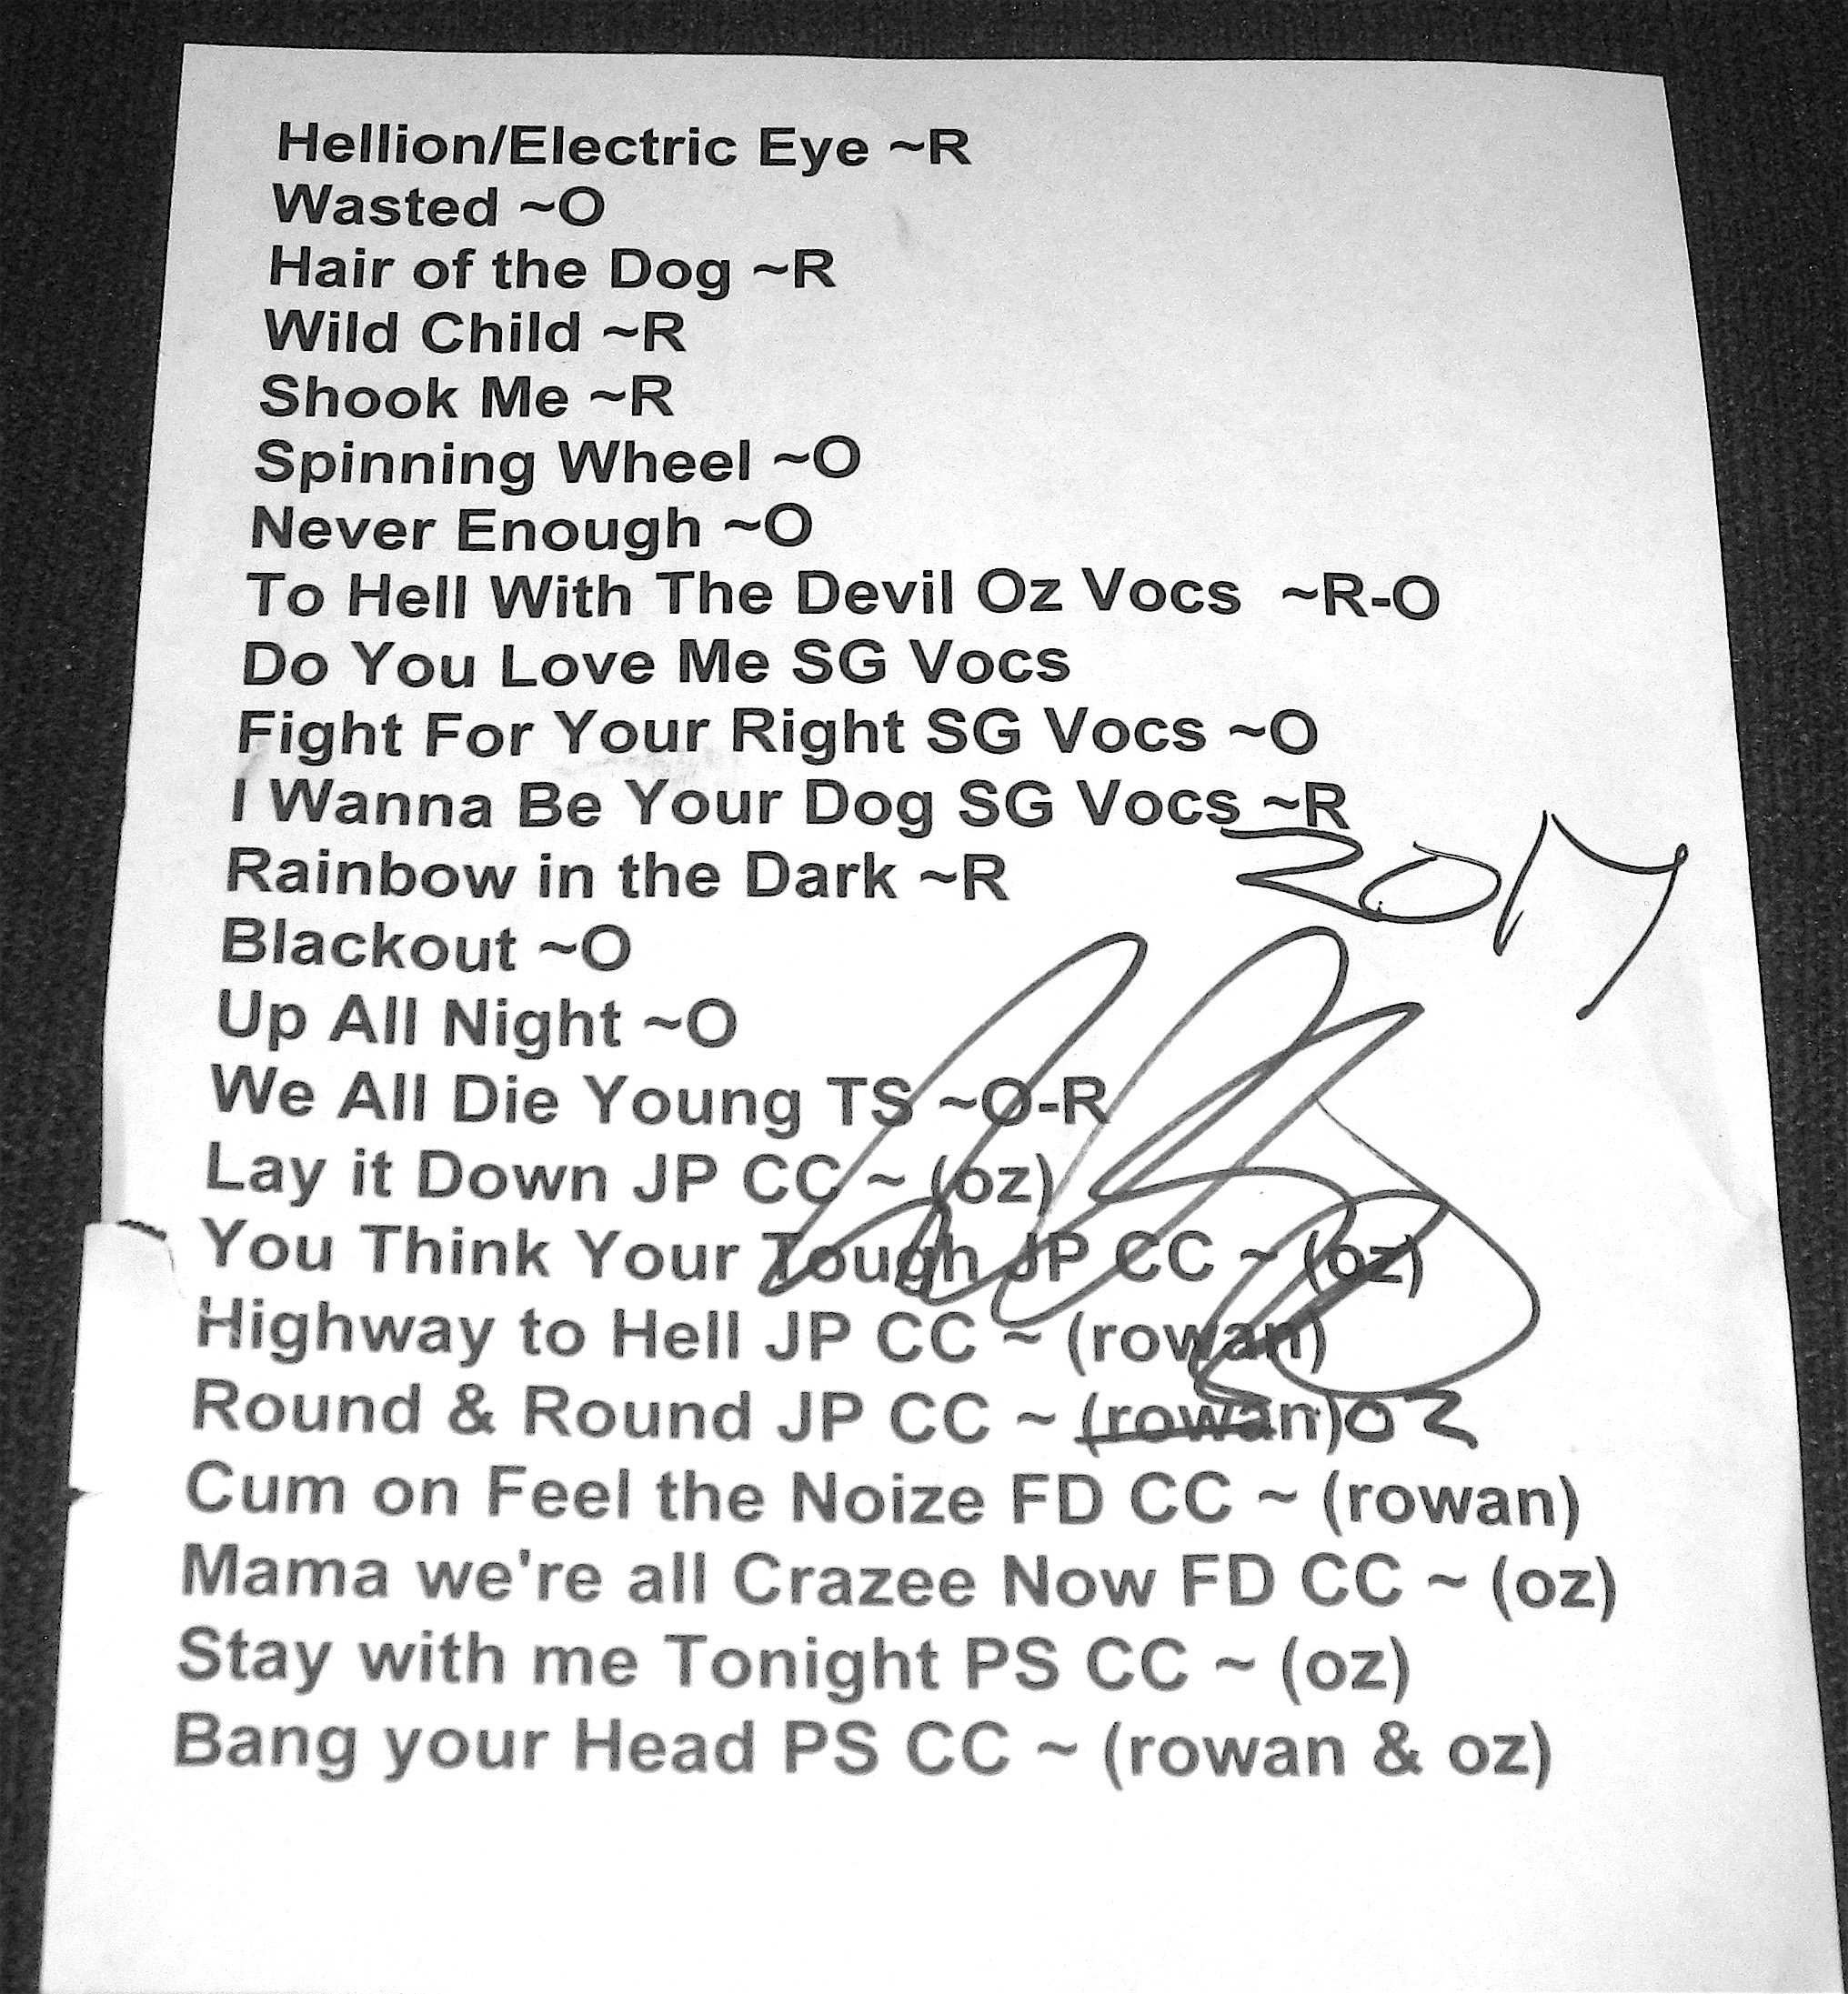 Hellion/Electric Eye ~R
Wasted ~O
Hair of the Dog ~R
Wild Child ~R
Shook Me ~R
Spinning Wheel ~O
Never Enough ~O
To Hell With The Devil Oz Vocs ~R-O
Do You Love Me SG Vocs
Fight For Your Right SG Vocs ~O
I Wanna Be Your Dog SG Vocs ~R
2017
Rainbow in the Dark ~R
Blackout ~O
Up All Night ~O
We All Die Young TS ~O-R
Lay it Down JP CC ~ (oz)
You Think Your Tough JP CC ~ (oz)
Highway to Hell JP CC ~ (rowan)
Round & Round JP CC ~ (rowan) oz
Cum on Feel the Noize FD CC ~ (rowan)
Mama we're all Crazee Now FD CC ~ (oz)
Stay with me Tonight PS CC ~ (oz)
Bang your Head PS CC ~ (rowan & oz)